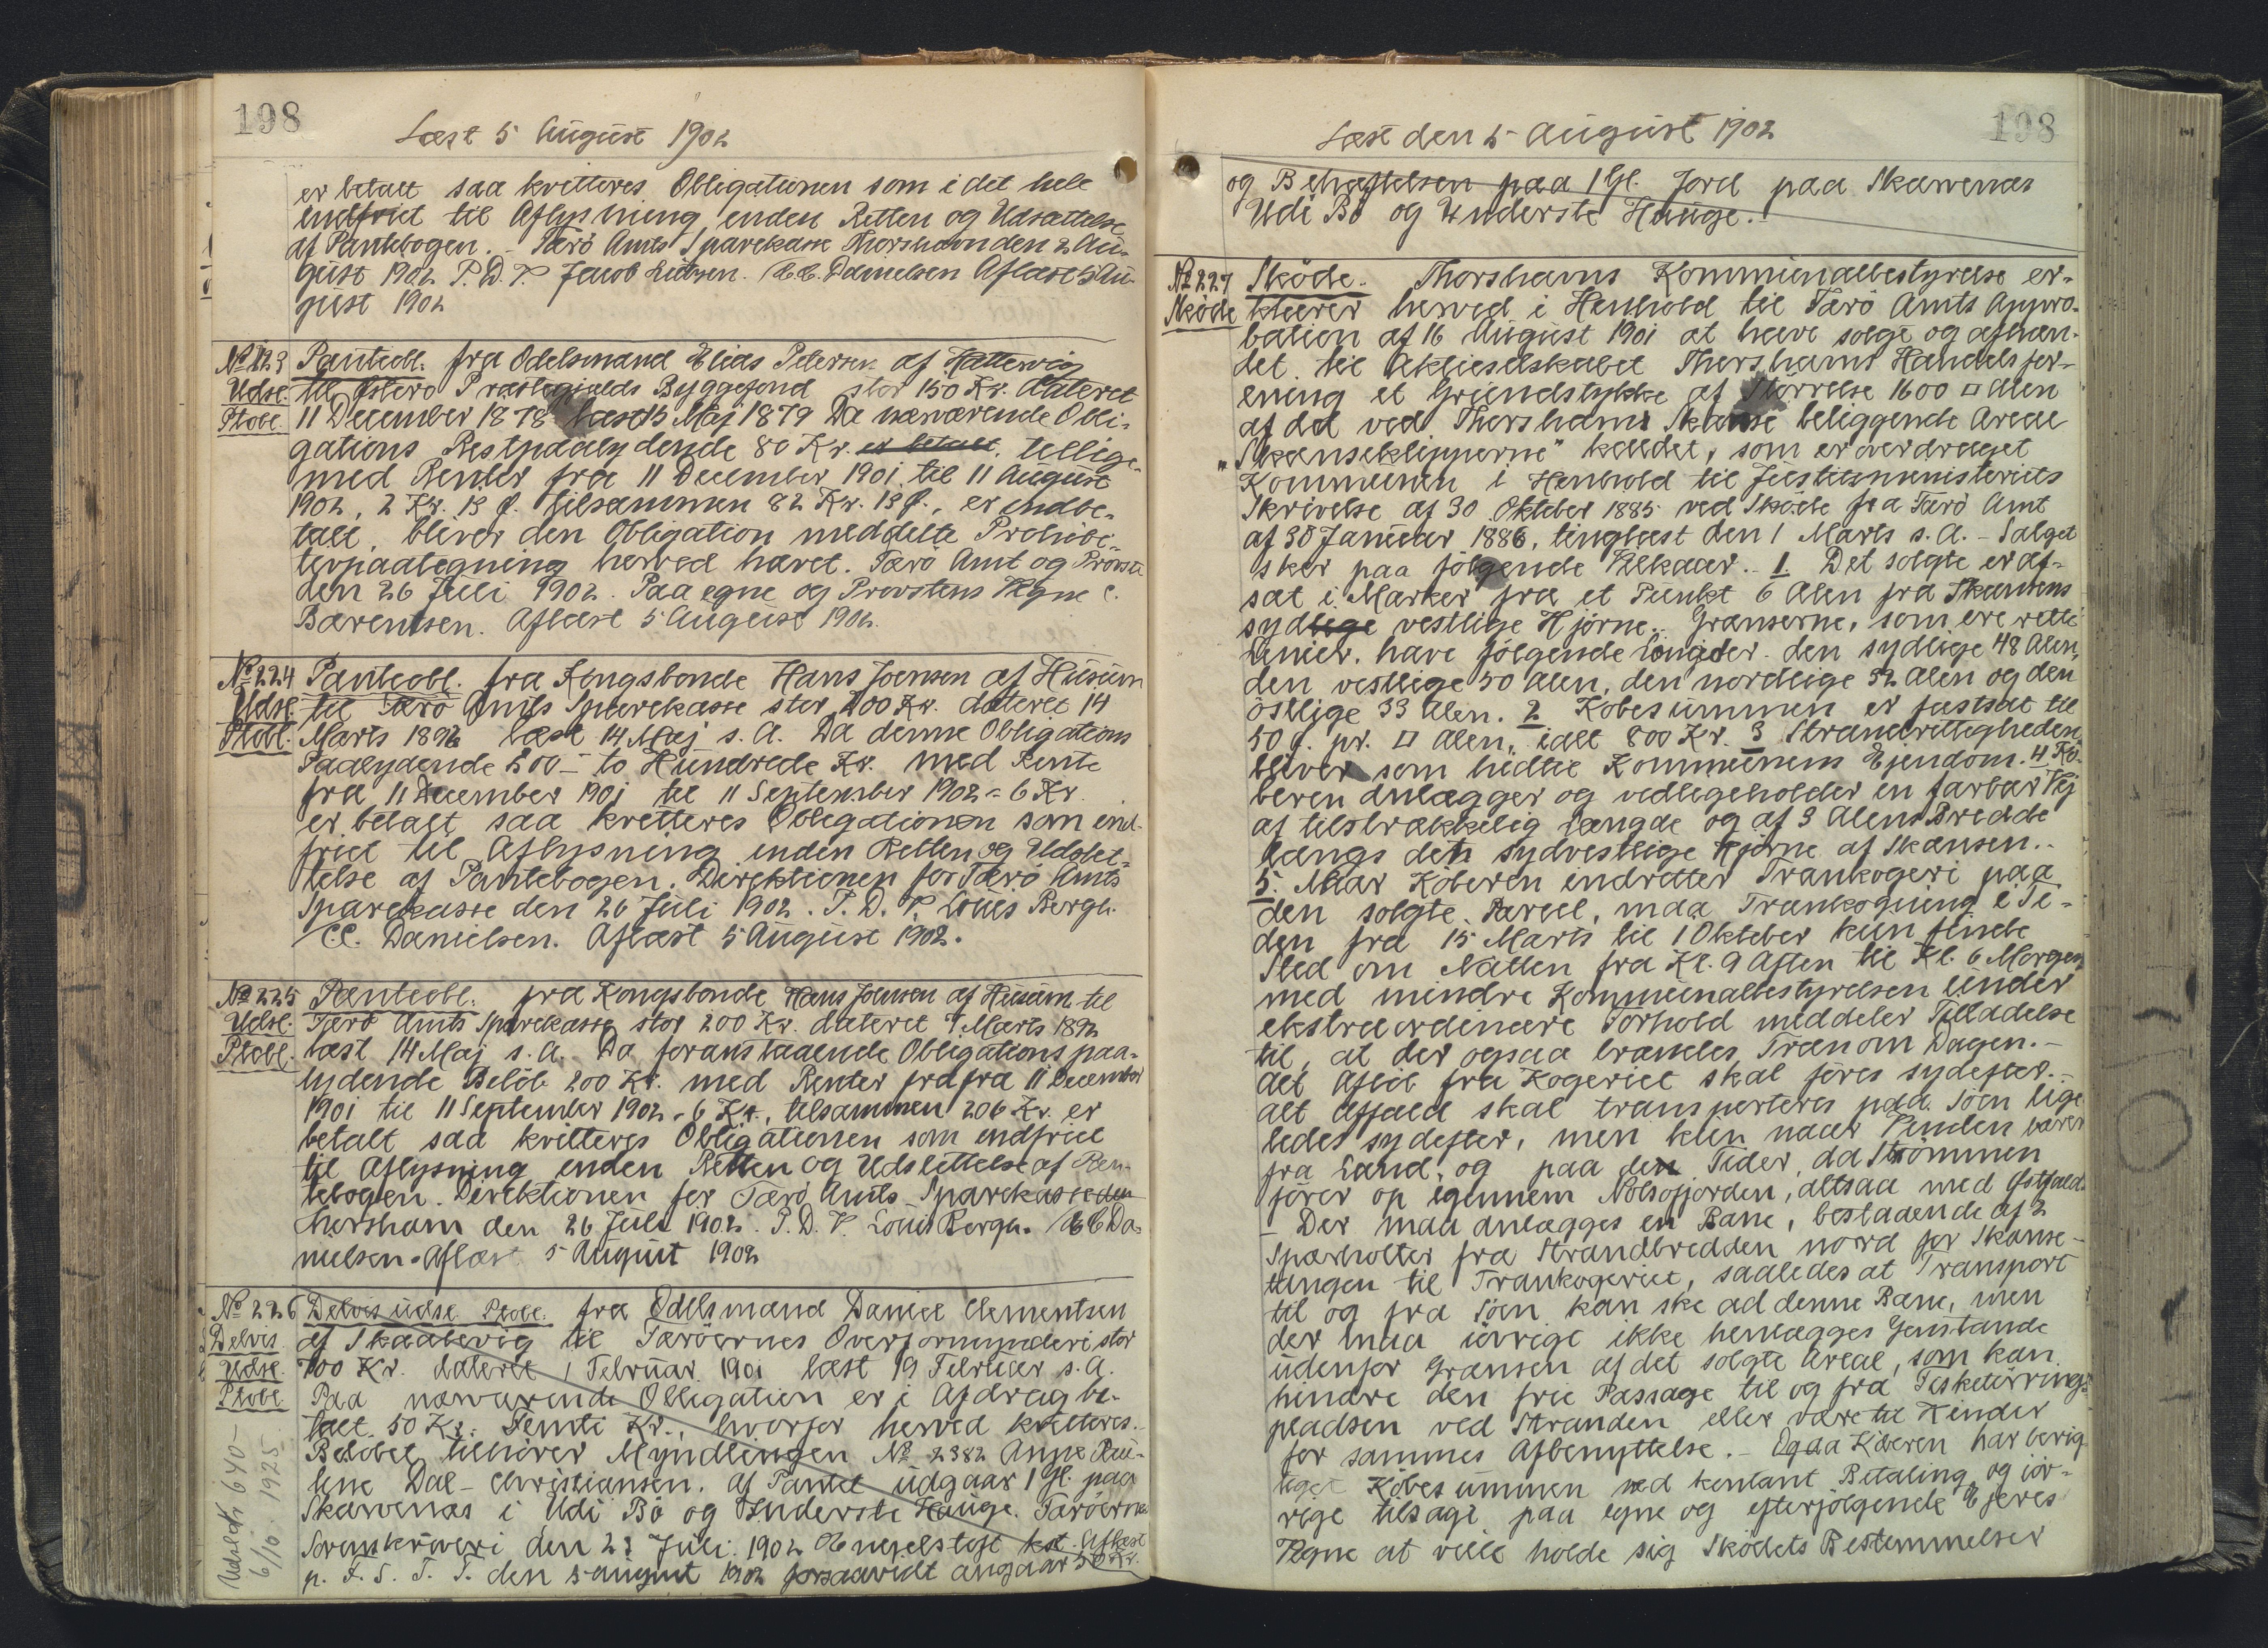 198
Læst 5 August 1902
er betalt saa kvitteres Obligationen som i det hele
indfriet til Aflysning inden Retten og Udslettelse
af Pantebogen. - Færö Amts Sparekasse Thorshavn den 2 Au-
gust 1902 P. D. V. Jacob Lützen. C. C. Danielsen Aflæst 5 Au-
gust 1902
No 223 Panteobl. fra Odelsmand Elias Petersen af Hattervig
Udsl. til Österö Præstegjælds Byggefond stor 150 Kr. dateret
Ptobl. 11 December 1878 læst 15 Maj 1879 Da nærværende Obli-
gations Restpaalydende 80 Kr. er betalt, tillige-
med Renter fra 11 December 1901 til 11 August
1902, 2 Kr. 13 Ø. tilsammen 82 Kr. 13 Ø., er indbe-
talt, bliver den Obligation meddelte Prohibi-
tivpaategning herved hævet. Færö Amt og Provsti
den 26 Juli 1902. Paa egne og Provstens Vegne C.
Bærentsen. Aflæst 5 August 1902.
No 224 Panteobl. fra Kongsbonde Hans Joensen af Husum
Udsl. til Færö Amts Sparekasse stor 200 Kr. dateret 14
Ptobl. Marts 1892 læst 14 Maj s. A. Da denne Obligations
Paalydende 200 - to Hundrede Kr. med Rente
fra 11 December 1901 til 11 September 1902 = 6 Kr.
er betalt saa kvitteres Obligationen som ind-
friet til Aflysning inden Retten og Udslet-
telse af Pantebogen. Direktionen for Færö Amts
Sparekasse den 26 Juli 1902. P. D. V. Louis Bergh.
C. C. Danielsen. Aflæst 5 August 1902.
No 225 Panteobl. fra Kongsbonde Hans Joensen af Husum til
Udsl. Færö Amts Sparekasse stor 200 Kr. dateret 7 Marts 1892
Ptobl. læst 14 Maj s. A. Da foranstaaende Obligations paa-
lydende Belöb 200 Kr. med Renter fra fra 11 December
1901 til 11 September 1902 = 6 Kr., tilsammen 206 Kr. er
betalt saa kvitteres Obligationen som indfriet
til Aflysning inden Retten og Udslettelse af Pan-
tebogen. Direktionen for Færö Amts Sparekasse den
Thorshavn den 26 Juli 1902. P. D. V. Louis Bergh. C C Da-
nielsen. Aflæst 5 August 1902
No 226 Delvis udsl. Ptobl. fra Odelsmand Daniel Clementsen
Delvis af Skaalevig til Færöernes Overformynderi stor
Udsl. 700 Kr. dateret 1 Februar 1901 læst 19 Februar s. A.
Ptobl Paa nærværende Obligation er i Afdrag be-
talt 50 Kr. Femti Kr., hvorfor herved kvitteres.
Belöbet tilhörer Myndlingen No 2382 Anne Pau-
line Dal-Christiansen. Af Pantet udgaar 1 Gl. paa
Skarvenæs i Udi Bö og Underste Hauge. Færöernes
Sorenskriveri den 23 Juli 1902 kst. Aflæst
p. F. S. T. T. den 5 August 1902 forsaavidt angaar 50 Kr.
Udslettet 640 -
6/10. 1925.
Læst den 5 August 1902
198
og Behæftelsen paa 1 Gl. Jord paa Skarvenæs
Udi Bö og Underste Hauge.
No 227 Sköde. Thorshavns Kommunalbestyrelse er-
Sköde klærer herved i Henhold til Færö Amts Appro-
bation af 16 August 1901 at have solgt og afhæn-
det til Aktieselskabet Thorshavns Handelsfor-
ening et Grundstykke af Störrelse 1600 □ Alen
af det ved Thorshavns Skanse beliggende Areal
"Skanseklipperne" kaldet, som er overdraget
Kommunen i Henhold til Justitsministeriets
Skrivelse af 30 Oktober 1885 ved Sköde fra Færö Amt
af 30 Januar 1886, tinglæst den 1 Marts s. A. - Salget
sker paa fölgende Vilkaar. - 1 Det solgte er af-
sat i Marken fra et Punkt 6 Alen fra Skansens
sydlige vestlige Hjörne. Grænserne, som ere rette
Linier, have fölgende Længder: den sydlige 48 Alen,
den vestlige 50 Alen, den nordlige 32 Alen og den
östlige 33 Alen. 2 Köbesummen er fastsat til
50 Ø. pr. □ Alen, ialt 800 Kr. 3 Strandrettigheden
bliver som hidtil Kommunens Ejendom. 4 Kö-
beren anlægger og vedligeholder en farbar Vej
af tilstrækkelig Længde og af 3 Alens Bredde
langs det sydvestlige Hjörne af Skansen. -
5. Naar Köberen indretter Trankogeri paa
den solgte Parcel, maa Trankogning i Ti-
den fra 15 Marts til 1 Oktober kun finde
Sted om Natten fra Kl. 9 Aften til Kl. 6 Morgen,
med mindre Kommunalbestyrelsen under
ekstraordinære Forhold meddeler Tilladelse
til, at der ogsaa brændes Tran om Dagen. -
Alt Aflöb fra Kogeriet skal föres sydefter. -
alt Affald skal transporteres paa Söen lige-
ledes sydefter, men kun naar Vinden bærer
fra Land, og paa den Tider, da Strömmen
förer op igennem Nolsofjorden, altsaa med Østfald.
- Der maa anlægges en Bane, bestaaende af 2
Spærholter fra Strandbredden nord for Skanse-
tangen til Trankogeriet, saaledes at Transport
til og fra Söen kan ske ad denne Bane, men
der maa iövrigt ikke henlægges Genstande
udenfor Grænsen af det solgte Areal, som kan
hindre den frie Passage til og fra Fisketörrings-
pladsen ved Stranden eller være til Hinder
for sammes Afbenyttelse. - Og da Köberen har berig-
tiget Köbesummen ved kontant Betaling og iöv-
rige tilsagt paa egne og efterfölgende Ejeres
Vegne at ville holde sig Sködets Bestemmelser